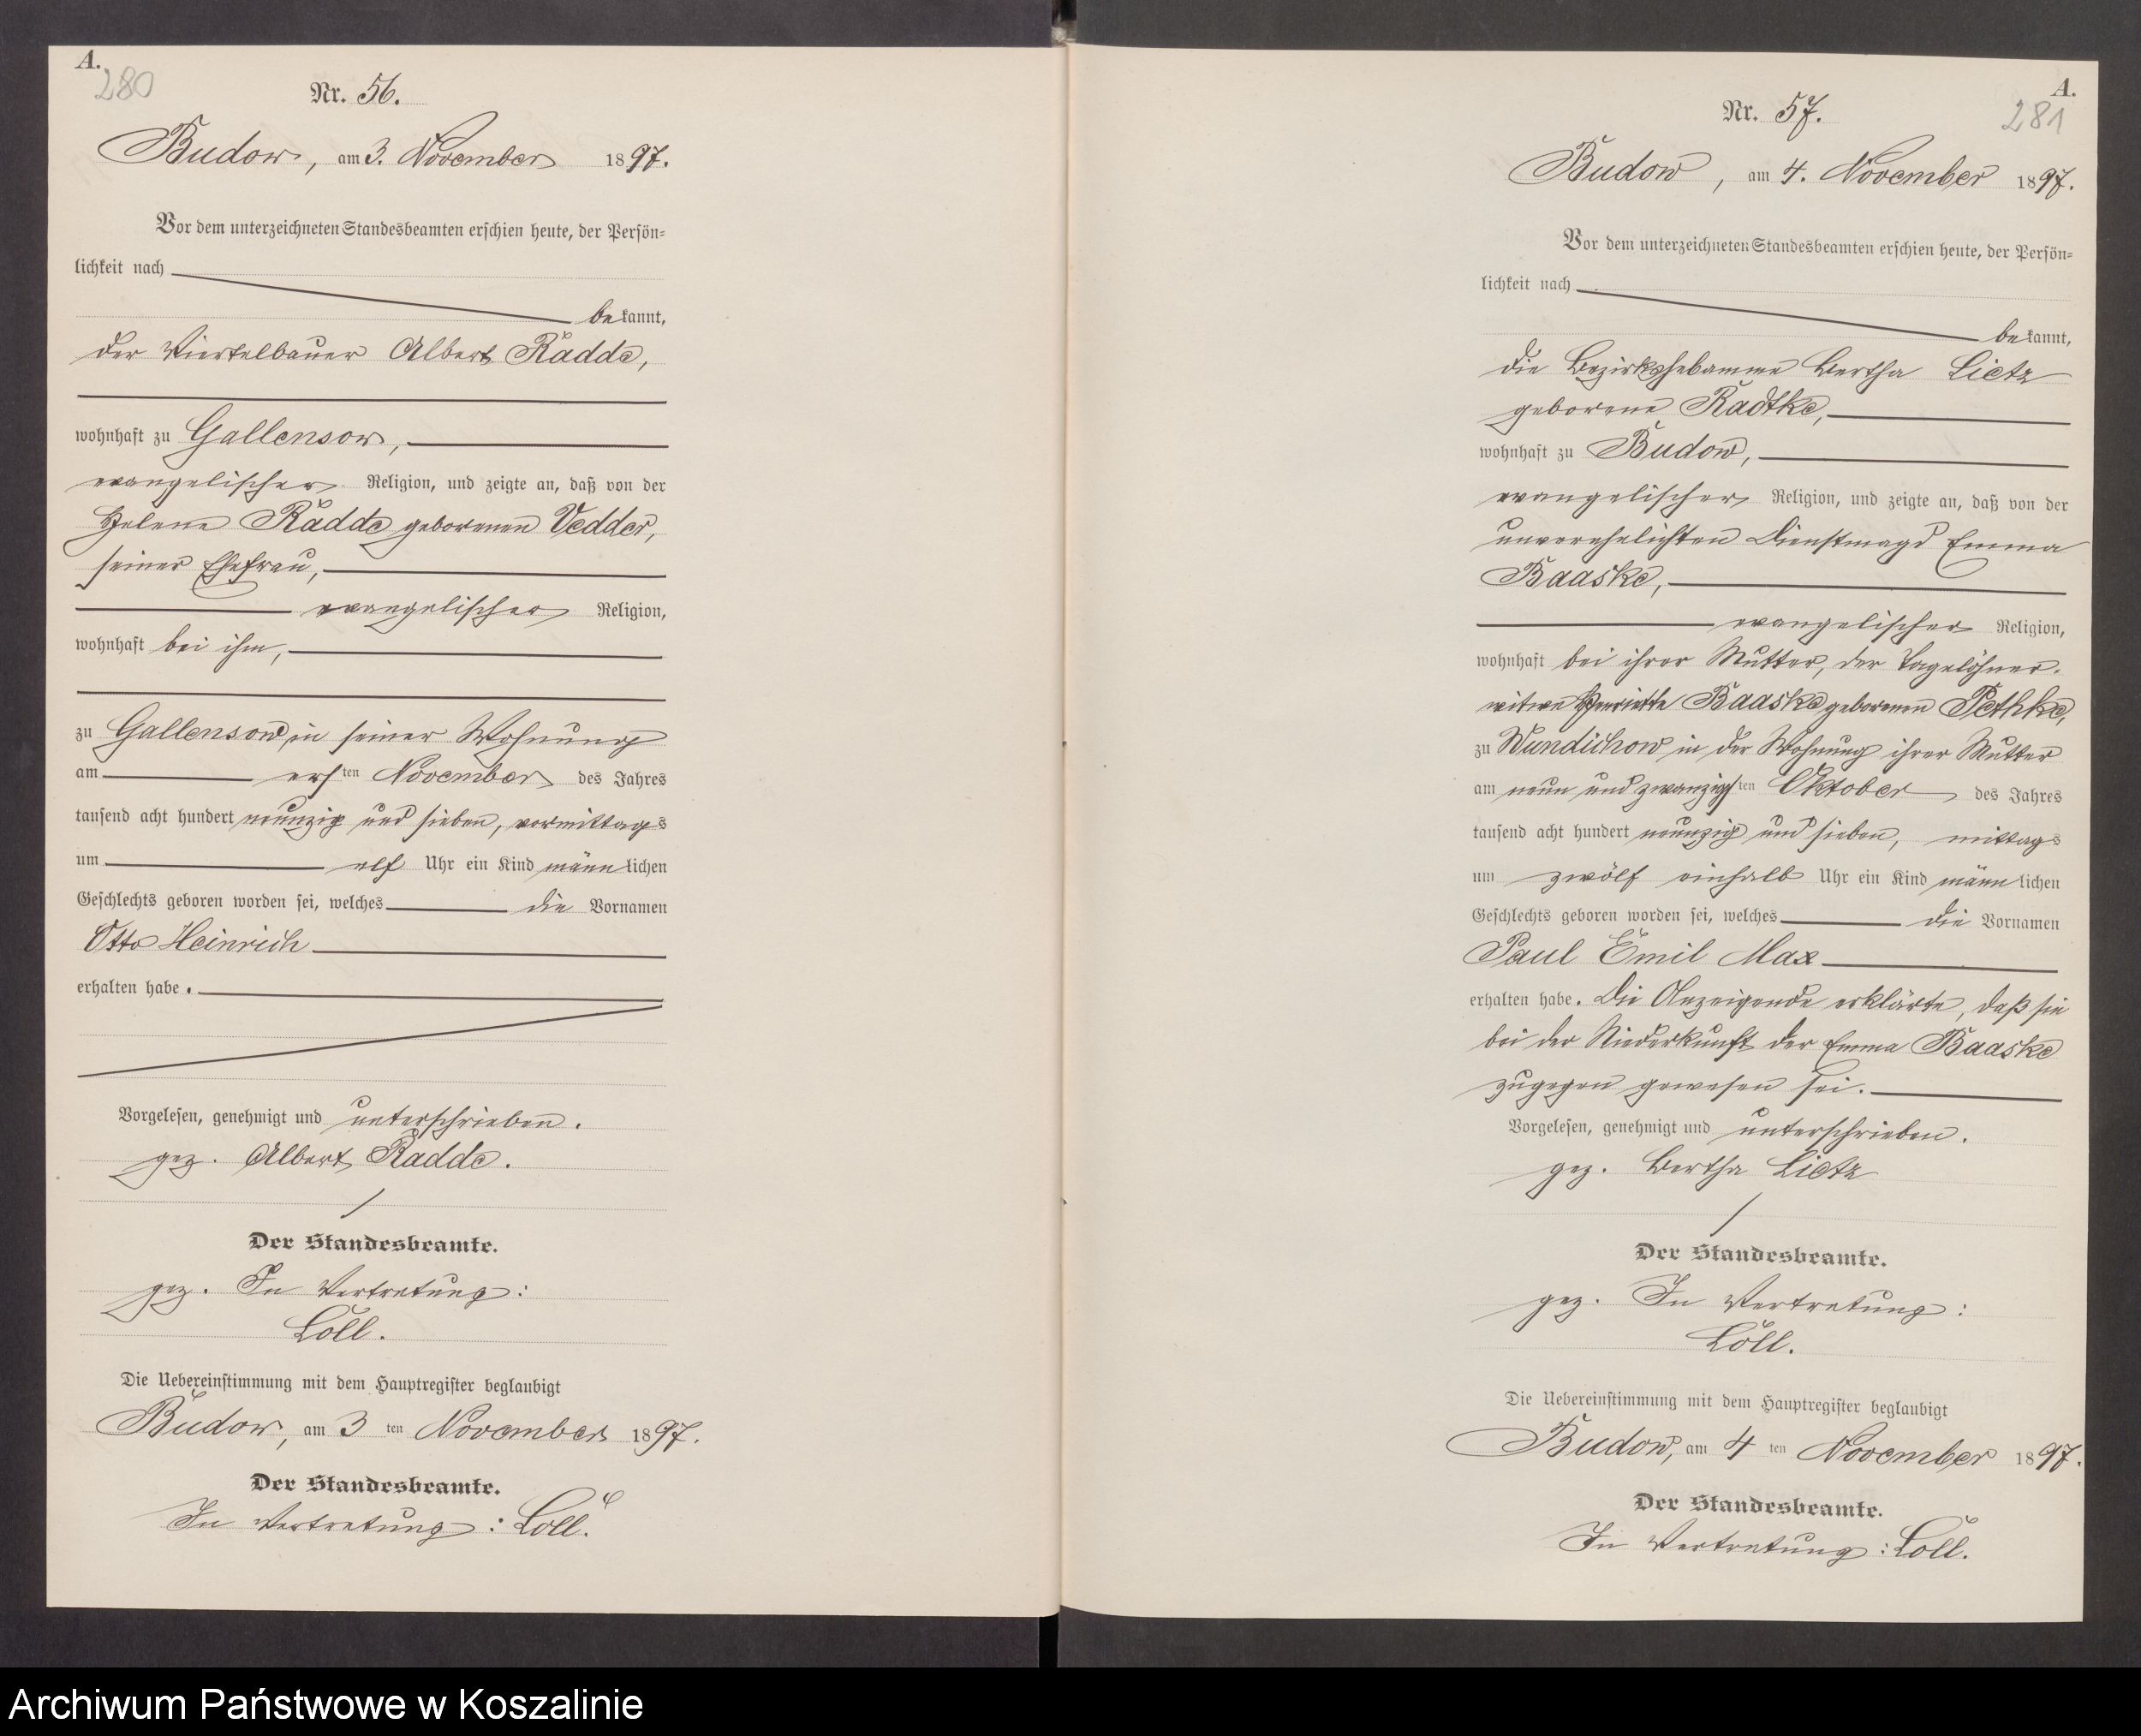 A.
280
Nr. 56.
Budow, am 3. November 1897.
Vor dem unterzeichneten Standesbeamten erschien heute, der Persön-
lichkeit nach
bekannt,
der Viertelbauer Albert Radde,
wohnhaft zu Gallensow,
evangelischer Religion, und zeigte an, daß von der
Helene Radde geborenen Vedder,
seiner Ehefrau,
evangelischer Religion,
wohnhaft bei ihm,
zu Gallensow in seiner Wohnung
am ersten November des Jahres
tausend acht hundert neunzig und sieben, vormittags
um elf Uhr ein Kind männlichen
Geschlechts geboren worden sei, welches die Vornamen
Otto Heinrich
erhalten habe.
Vorgelesen, genehmigt und unterschrieben.
gez. Albert Radde.
Der Standesbeamte.
gez. In Vertretung:
Loll.
Die Uebereinstimmung mit dem Hauptregister beglaubigt
Budow, am 3 ten November 1897.
Der Standesbeamte.
In Vertretung: Loll.
A.
281
Nr. 57.
Budow, am 4. November 1897.
Vor dem unterzeichneten Standesbeamten erschien heute, der Persön-
lichkeit nach
bekannt,
die Bezirkshebamme Bertha Lietz
geborene Radtke,
wohnhaft zu Budow,
evangelischer Religion, und zeigte an, daß von der
unverehelichten Dienstmagd Emma
Baaske,
evangelischer Religion,
wohnhaft bei ihrer Mutter, der Tagelöhner-
witwe Henriette Baaske geborenen Pethke,
zu Wundichow in der Wohnung ihrer Mutter
am neun und zwanzigsten Oktober des Jahres
tausend acht hundert neunzig und sieben, mittags
um zwölf einhalb Uhr ein Kind männlichen
Geschlechts geboren worden sei, welches die Vornamen
Paul Emil Max
erhalten habe. Die Anzeigende erklärte, daß sie
bei der Niederkunft der Emma Baaske
zugegen gewesen sei.
Vorgelesen, genehmigt und unterschrieben.
gez. Bertha Lietz
Der Standesbeamte.
gez. In Vertretung:
Loll.
Die Uebereinstimmung mit dem Hauptregister beglaubigt
Budow, am 4 ten November 1897.
Der Standesbeamte.
In Vertretung: Loll.
Archiwum Państwowe w Koszalinie